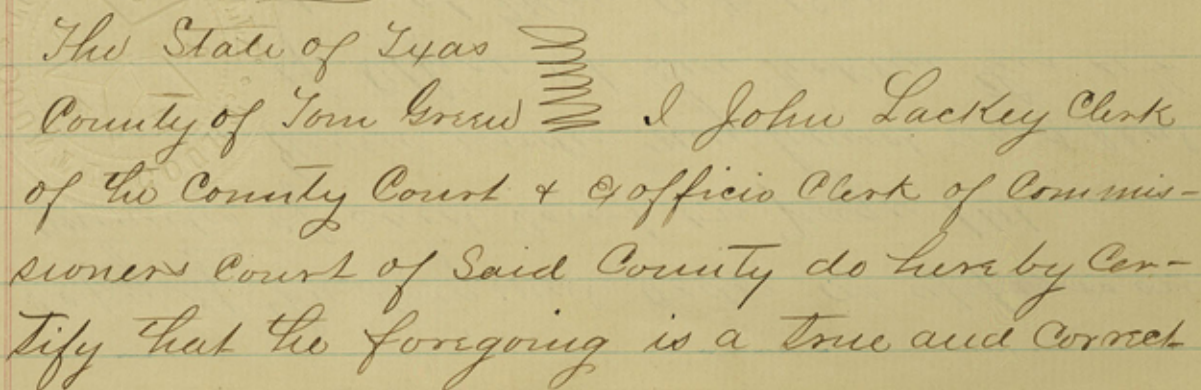 The State of Texas
County of Tom Green I John Lackey Clerk
of the County Court & Exofficio Clerk of Commis-
sioners Court of Said County do hereby Cer-
tify that the foregoing is a true and Correct